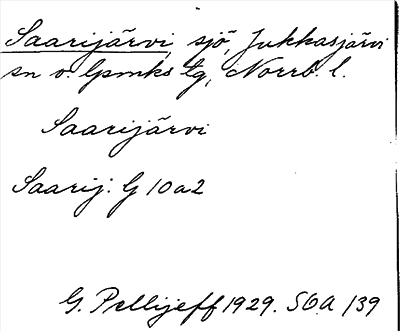 Saarijärvi, sjö, Jukkasjärvi
sn o. lpmks tg, Norrb. l.
Saarijärvi
Saarij: G 10a2
G. Pellijeff 1929. SOA /39